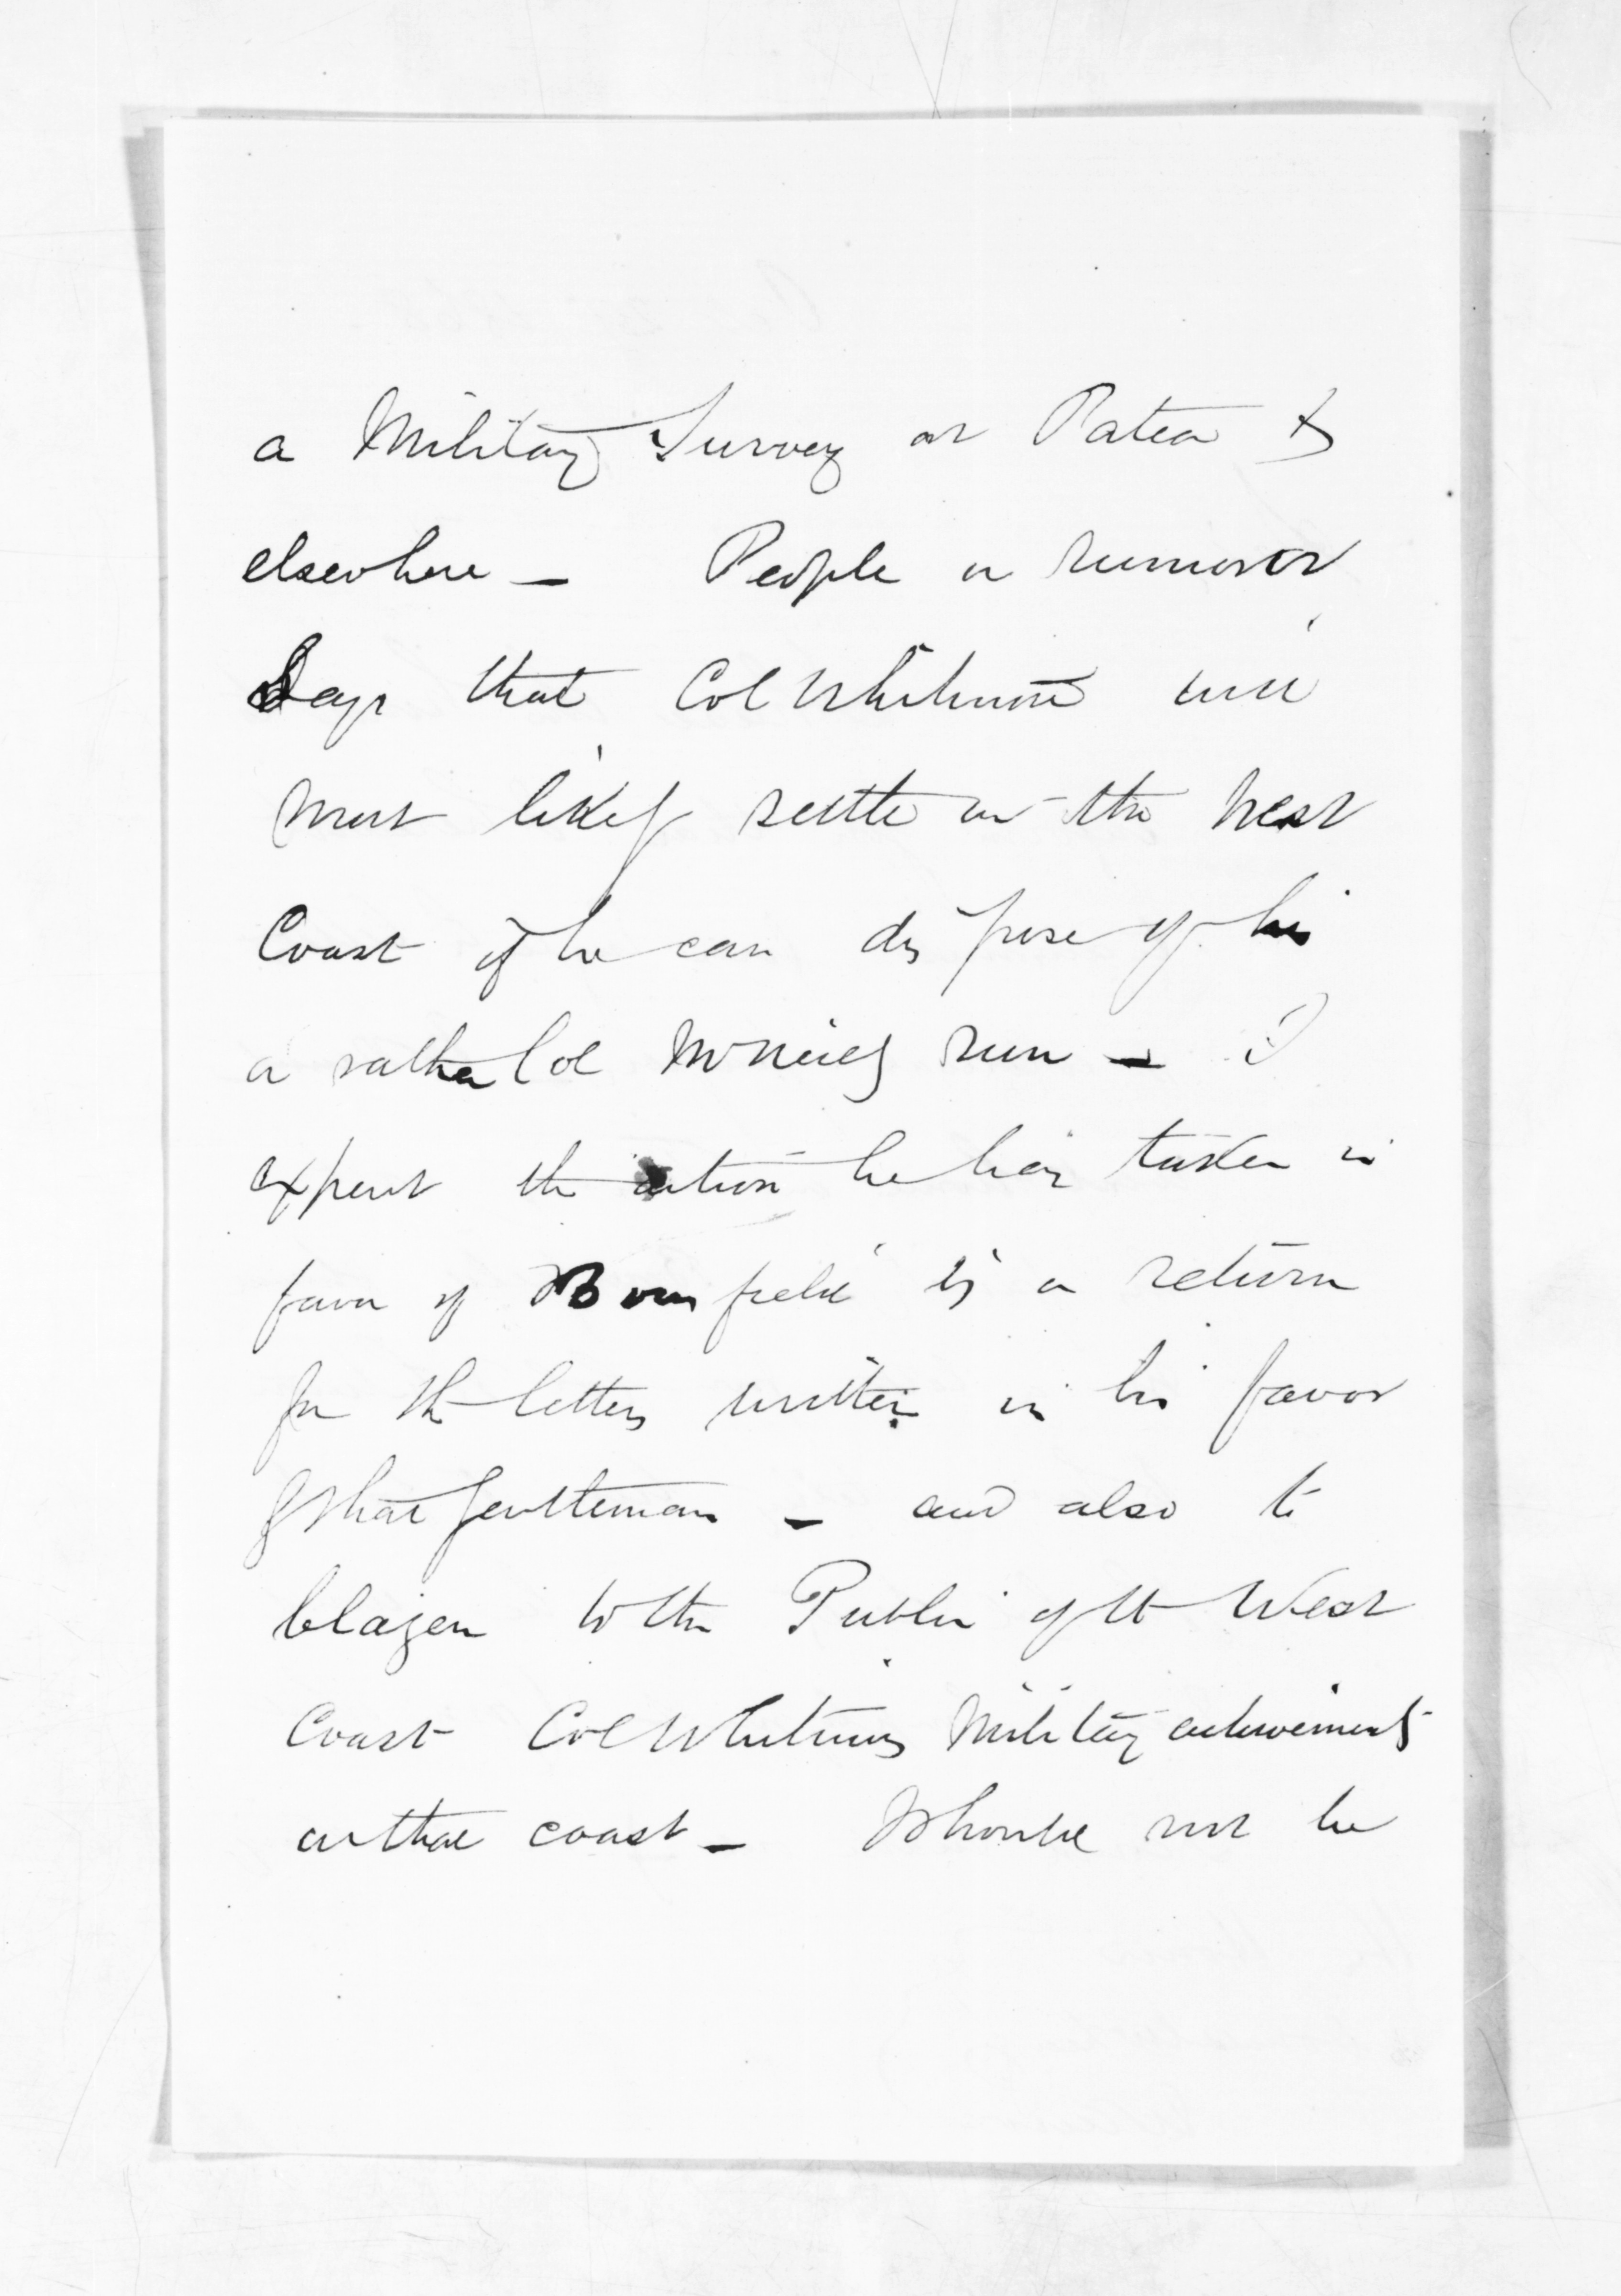 a Military Survey at Patea &
elsewhere — People or rumour
Says that Col Whitmore will
most likely settle on the West
Coast if he can dispose of his
or rather Col McNeill's run — I
expect the action he has taken in
favor of Bamfield is a return
for the letters written in his favor
by that gentleman — and also to
blazen to the Public of the West
Coast Col Whitmores Military achievements
on that coast — I should not be